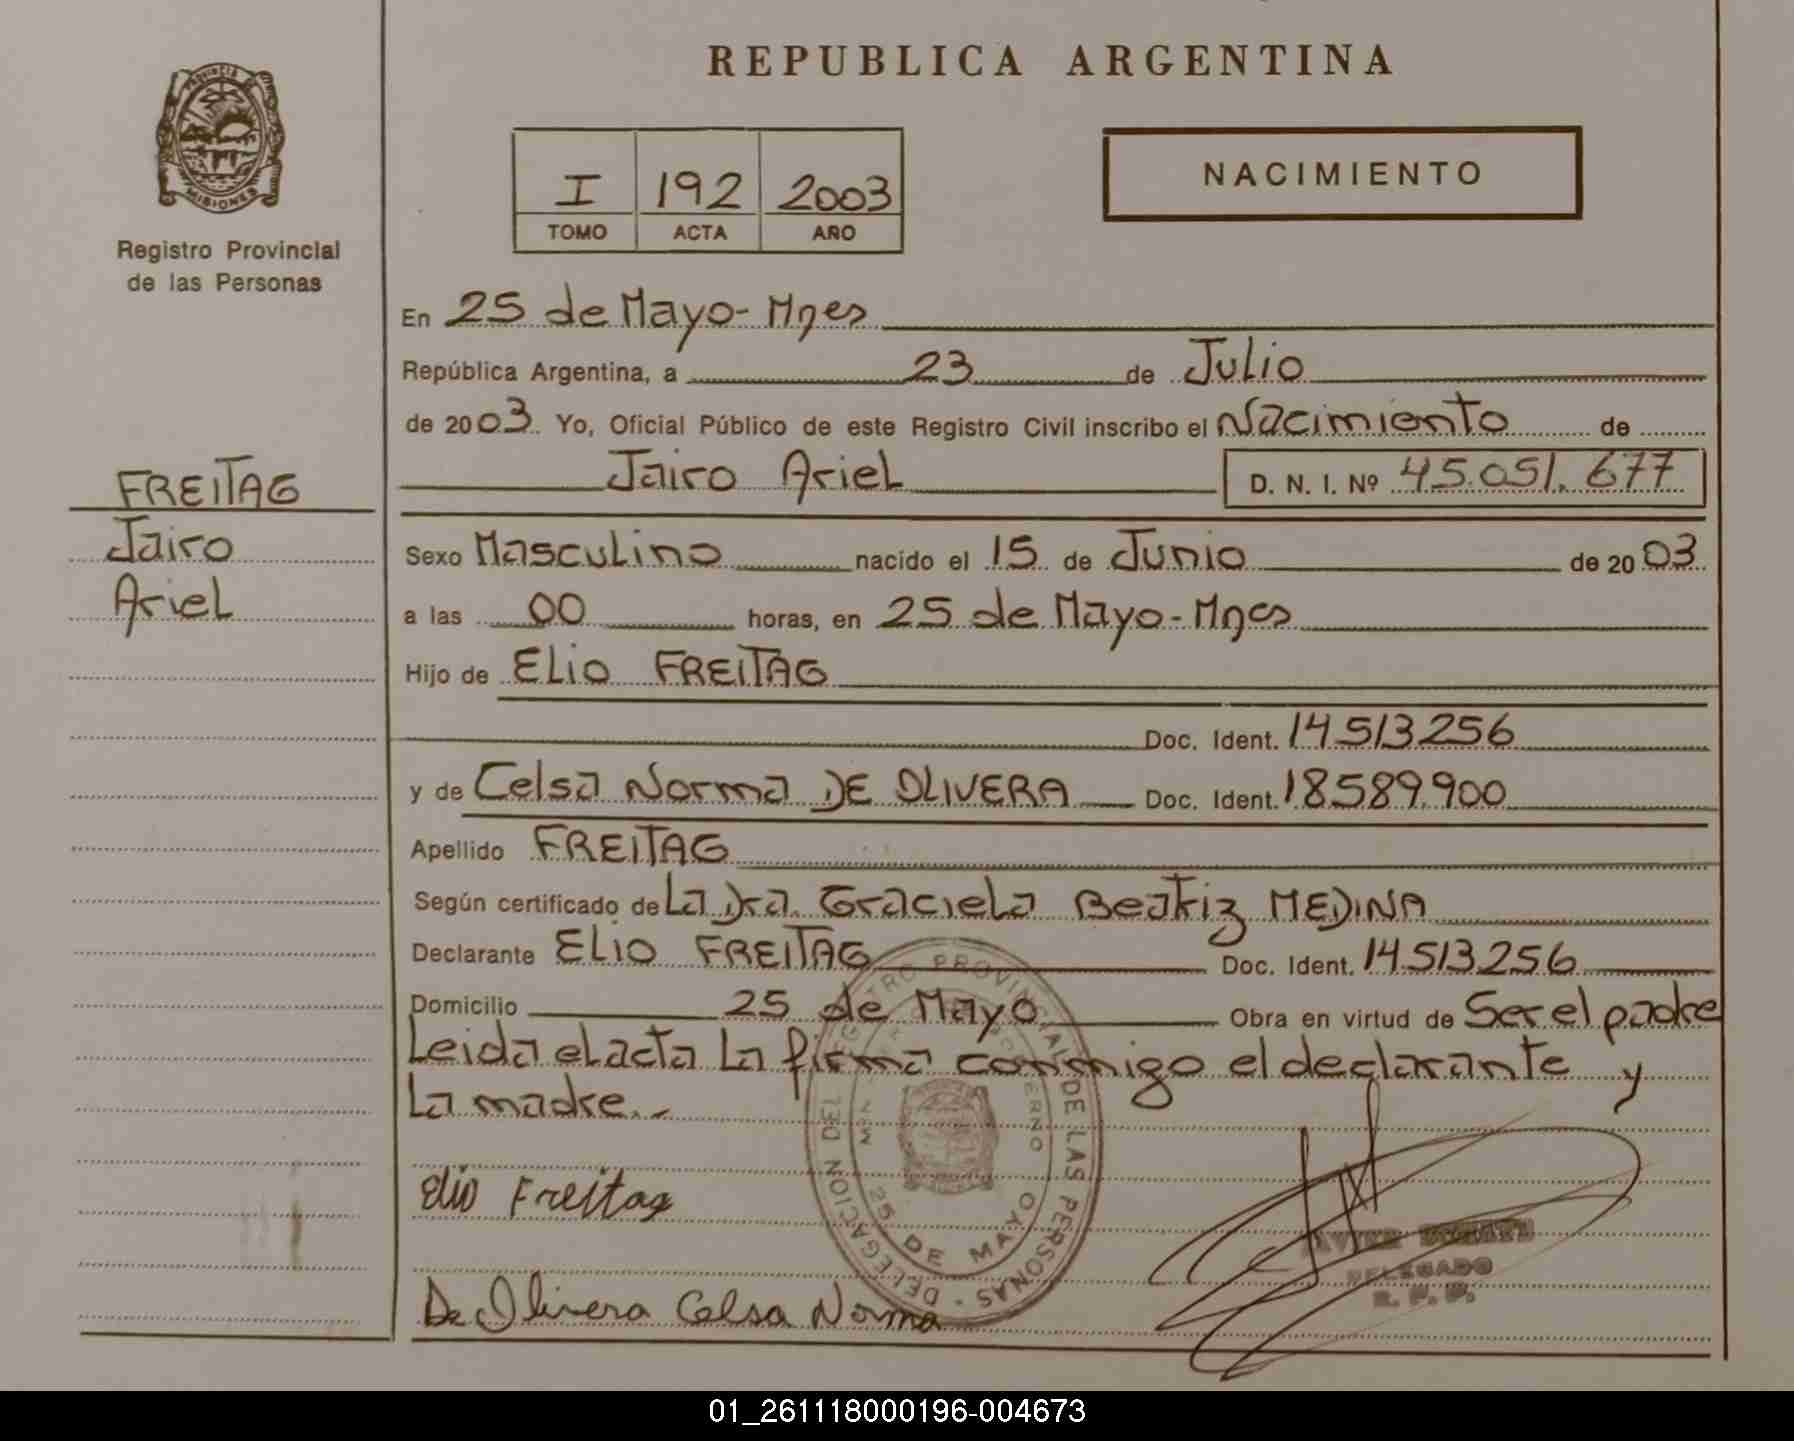 REPUBLICA ARGENTINA
PROVINCIA DE
MISIONES
Registro Provincial
de las Personas
I 192 2003
TOMO ACTA AÑO
NACIMIENTO
FREITAG
Jairo
Ariel
En 25 de Mayo- Mnes
República Argentina, a 23 de Julio
de 2003. Yo, Oficial Público de este Registro Civil inscribo el Nacimiento de
Jairo Ariel D. N. I. Nº 45.051.677
Sexo Masculino nacido el 15 de Junio de 2003
a las 00 horas, en 25 de Mayo- Mnes
Hijo de Elio FREITAG
Doc. Ident. 14513256
y de Celsa Norma DE OLIVERA Doc. Ident. 18589.900
Apellido FREITAG
Según certificado de La Dra. Graciela Beatriz MEDINA
Declarante Elio FREITAG Doc. Ident. 14513256
Domicilio 25 de Mayo Obra en virtud de Ser el padre
Leida el acta La firma conmigo el declarante y
La madre..-
Elio Freitag
De Olivera Celsa Norma
DELEGACION DEL REGISTRO PROVINCIAL DE LAS PERSONAS
25 DE MAYO
DELEGADO
R. P. P.
01_261118000196-004673